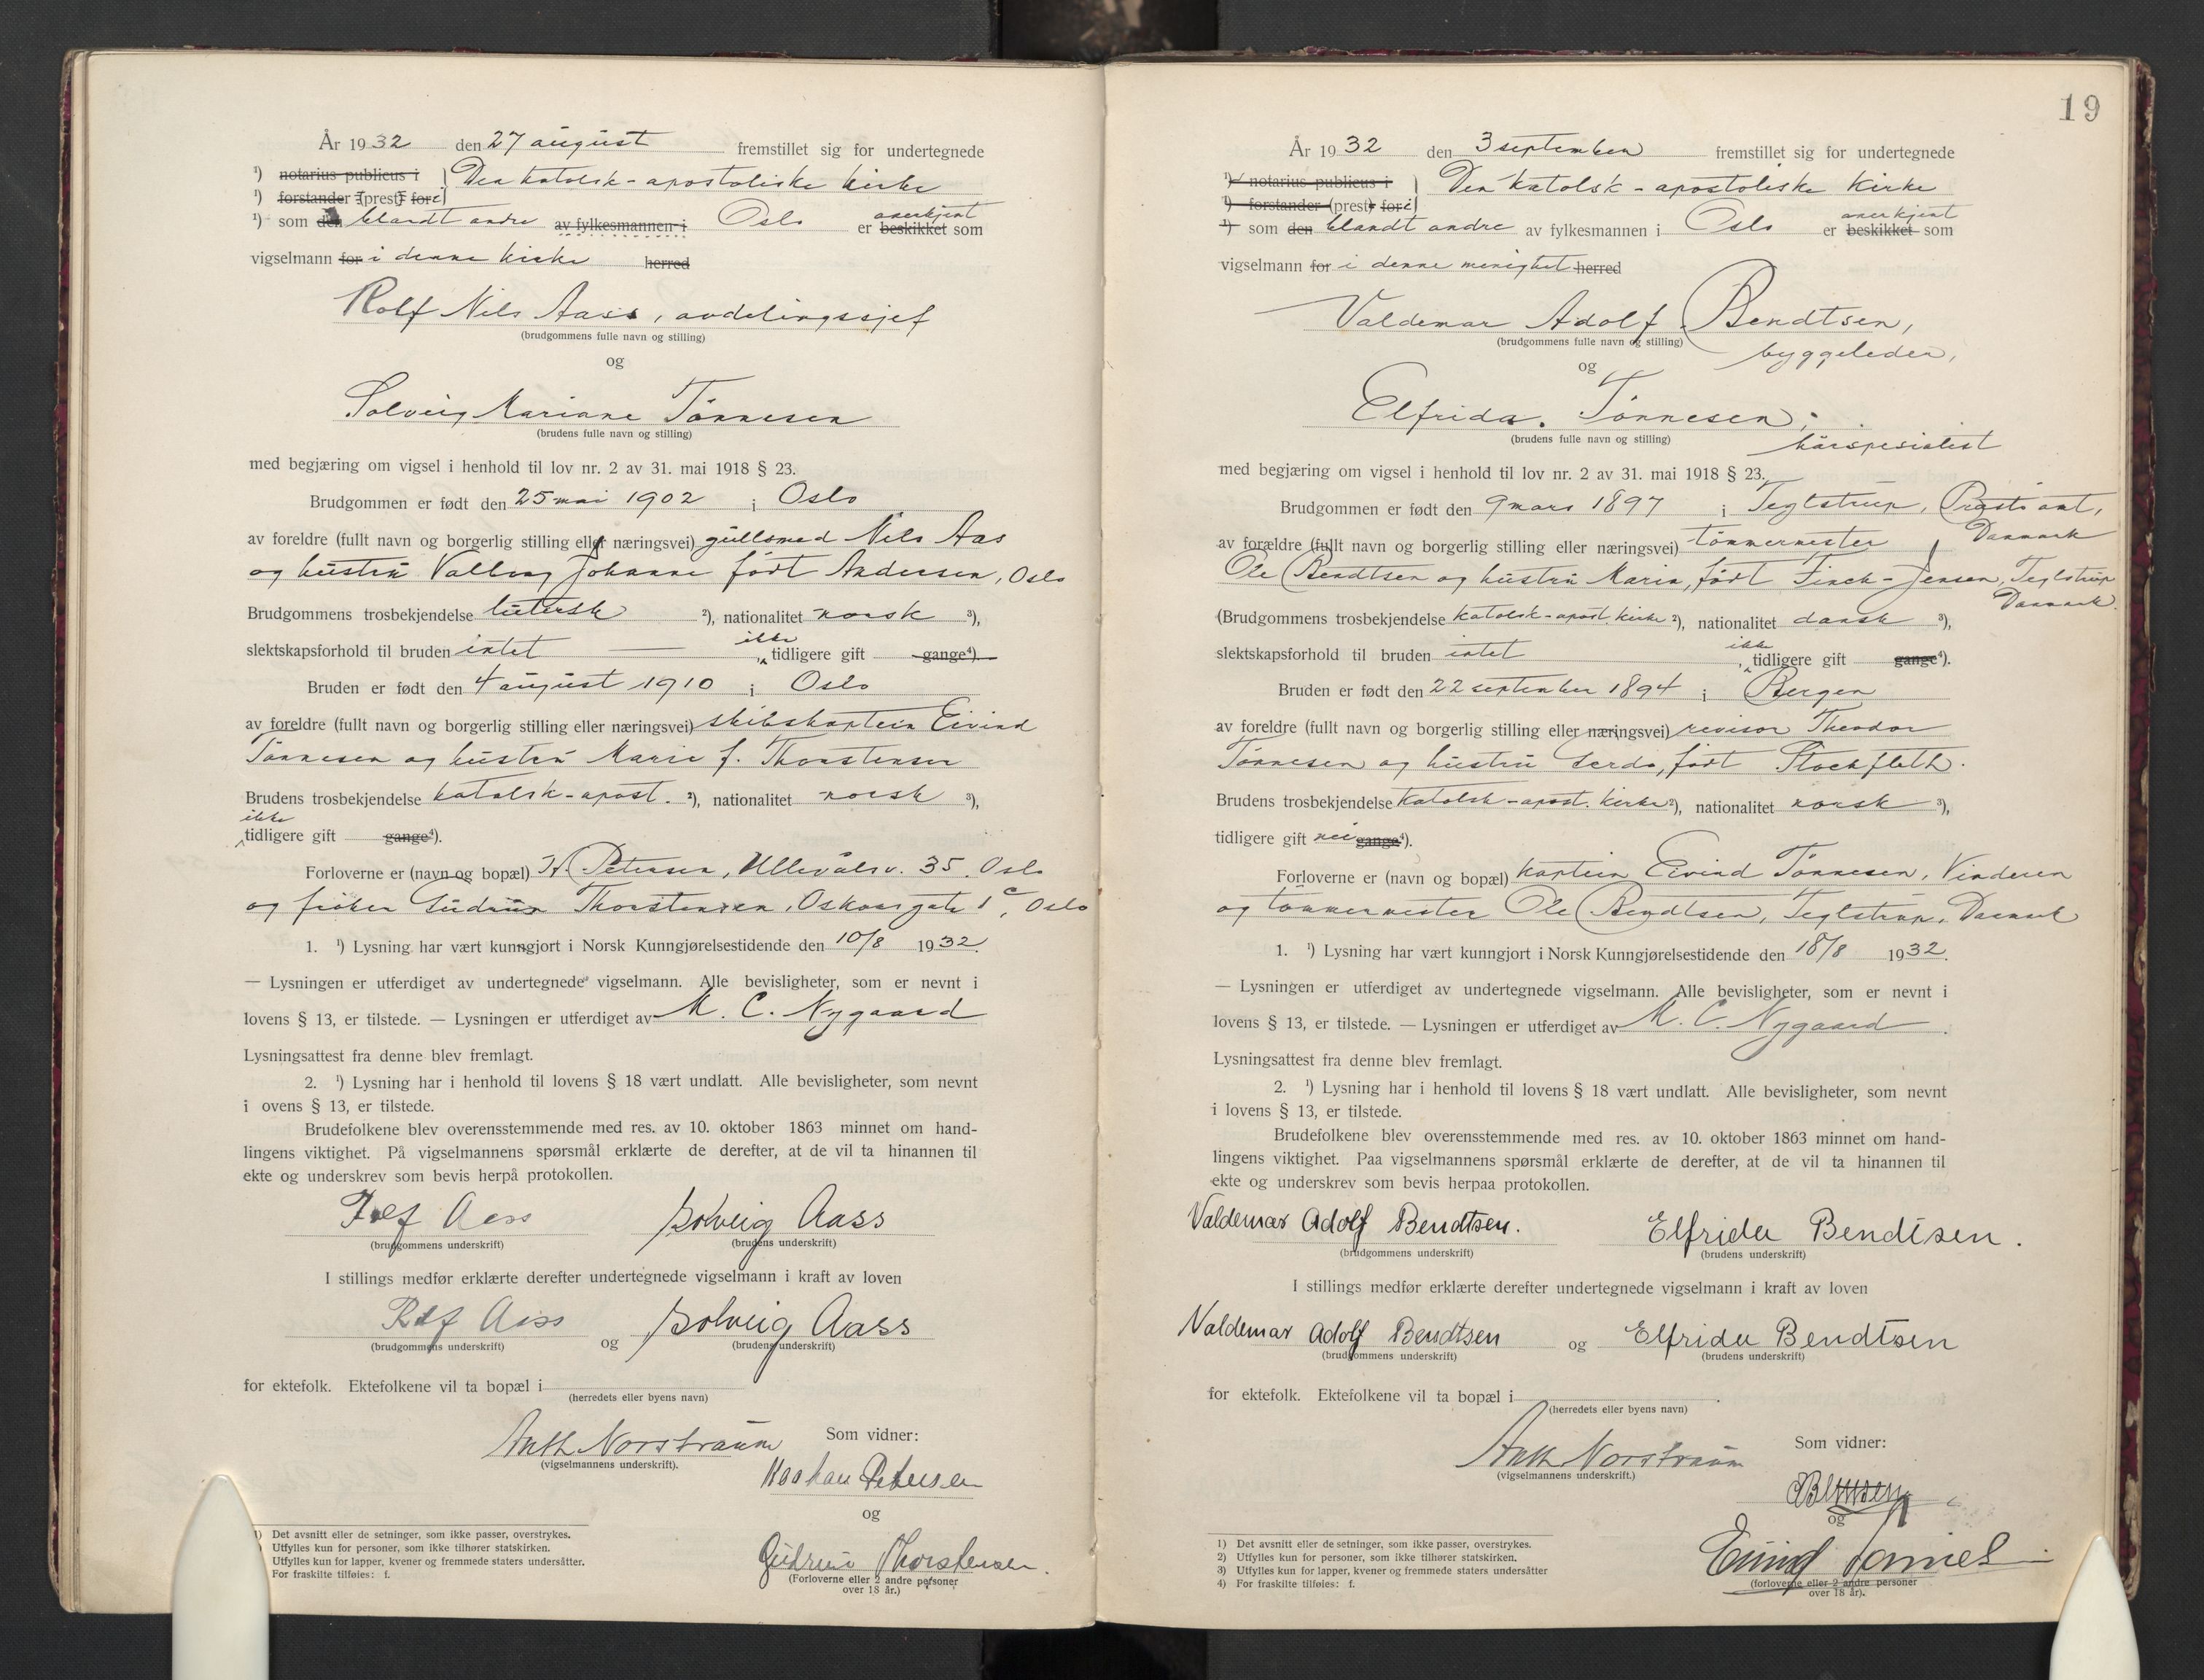 År 1932 den 27 august fremstillet sig for undertegnede
¹) notarius publicus i } Den katolsk-apostoliske kirke
¹) forstander (prest) for i
¹) som den blandt andre av fylkesmannen i Oslo er anerkjent beskikket som
vigselmann for i denne kirke herred
Rolf Nils Aass, avdelingssjef
(brudgommens fulle navn og stilling)
og
Solveig Mariane Tönnesen
(brudens fulle navn og stilling)
med begjæring om vigsel i henhold til lov nr. 2 av 31. mai 1918 § 23.
Brudgommen er født den 25 mai 1902 i Oslo
av foreldre (fullt navn og borgerlig stilling eller næringsvei) gullsmed Nils Aas
og hustru Valborg Johanne født Andersen, Oslo
Brudgommens trosbekjendelse lutersk ²), nationalitet norsk ³),
slektskapsforhold til bruden intet — , ikke tidligere gift gange⁴).
Bruden er født den 4 august 1910 i Oslo
av foreldre (fullt navn og borgerlig stilling eller næringsvei) skibskaptein Eivind
Tönnesen og hustru Marie f. Thorstensen
Brudens trosbekjendelse katolsk-apost. ²), nationalitet norsk ³),
ikke
tidligere gift gange⁴).
Forloverne er (navn og bopæl) H. Petersen, Ullevålsv. 35. Oslo
og frøken Gudrun Thorstensen, Oskarsgate 1c, Oslo
1. ¹) Lysning har vært kunngjort i Norsk Kunngjørelsestidende den 10/8 1932.
— Lysningen er utferdiget av undertegnede vigselmann. Alle bevisligheter, som er nevnt i
lovens § 13, er tilstede. — Lysningen er utferdiget av M. C. Nygaard
Lysningsattest fra denne blev fremlagt.
2. ¹) Lysning har i henhold til lovens § 18 vært undlatt. Alle bevisligheter, som nevnt
i ovens § 13, er tilstede.
Brudefolkene blev overensstemmende med res. av 10. oktober 1863 minnet om hand-
lingens viktighet. På vigselmannens spørsmål erklærte de derefter, at de vil ta hinannen til
ekte og underskrev som bevis herpå protokollen.
Rolf Aass Solveig Aass
(brudgommens underskrift) (brudens underskrift)
I stillings medfør erklærte derefter undertegnede vigselmann i kraft av loven
Rolf Aass og Solveig Aass
(brudgommens underskrift) (brudens underskrift)
for ektefolk. Ektefolkene vil ta bopæl i
(herredets eller byens navn)
Anth Norstraum Som vidner:
(vigselmannens underskrift).
Haakon Petersen
og
Gudrun Thorstensen.
(Forloverne eller 2 andre personer
over 18 år.)
1) Det avsnitt eller de setninger, som ikke passer, overstrykes.
Utfylles kun for personer, som ikke tilhører statskirken.
Utfylles kun for lapper, kvener og fremmede staters undersåtter.
For fraskilte tilføies: f.
19
År 1932 den 3 september fremstillet sig for undertegnede
¹) notarius publicus i } Den katolsk-apostoliske Kirke
¹) forstander (prest) for i
¹) som den blandt andre av fylkesmannen i Oslo er anerkjent beskikket som
vigselmann for i denne menighet herred
Valdemar Adolf Bendtsen,
(brudgommens fulle navn og stilling)
byggeleder,
og
Elfrida Tönnesen,
(brudens fulle navn og stilling)
hårspesialist
med begjæring om vigsel i henhold til lov nr. 2 av 31. mai 1918 § 23.
Brudgommen er født den 9 mars 1897 i Teglstrup, Præstö amt,
Danmark
av forældre (fullt navn og borgerlig stilling eller næringsvei) tömmermester
Ole Bendtsen og hustru Maria, født Finck-Jensen, Teglstrup
Danmark.
(Brudgommens trosbekjendelse katolsk-apost. kirke ²), nationalitet dansk ³),
slektskapsforhold til bruden intet , ikke tidligere gift gange⁴).
Bruden er født den 22 september 1894 i Bergen
av foreldre (fullt navn og borgerlig stilling eller næringsvei) revisor Theodor
Tönnesen og hustru Gerda, født Stockfleth.
Brudens trosbekjendelse katolsk-apost. kirke ²), nationalitet norsk ³),
tidligere gift nei gange⁴).
Forloverne er (navn og bopæl) kaptein Eivind Tönnesen, Vinderen
og tömmermester Ole Bendtsen, Teglstrup, Danmark
1. ¹) Lysning har vært kunngjort i Norsk Kunngjørelsestidende den 18/8 1932.
— Lysningen er utferdiget av undertegnede vigselmann. Alle bevisligheter, som er nevnt i
lovens § 13, er tilstede. — Lysningen er utferdiget av M. C. Nygaard.
Lysningsattest fra denne blev fremlagt.
2. ¹) Lysning har i henhold til lovens § 18 vært undlatt. Alle bevisligheter, som nevnt
i lovens § 13, er tilstede.
Brudefolkene blev overensstemmende med res. av 10. oktober 1863 minnet om hand-
lingens viktighet. Paa vigselmannens spørsmål erklærte de derefter, at de vil ta hinannen til
ekte og underskrev som bevis herpaa protokollen.
Valdemar Adolf Bendtsen. Elfrida Bendtsen.
(brudgommens underskrift) (brudens underskrift)
I stillings medfør erklærte derefter undertegnede vigselmann i kraft av loven
Valdemar Adolf Bendtsen og Elfrida Bendtsen
(brudgommens underskrift) (brudens underskrift)
for ektefolk. Ektefolkene vil ta bopæl i .
(herredets eller byens navn)
Anth Norstraum Som vidner:
(vigselmannens underskrift.)
og
(forloverne eller 2 andre personer
over 18 år).
1) Det avsnitt eller de setninger, som ikke passer, overstrykes.
2) Utfylles kun for personer, som ikke tilhører statskirken.
3) Utfylles kun for lapper, kvener og fremmede staters undersåtter
4) For fraskilte tilføies: f.